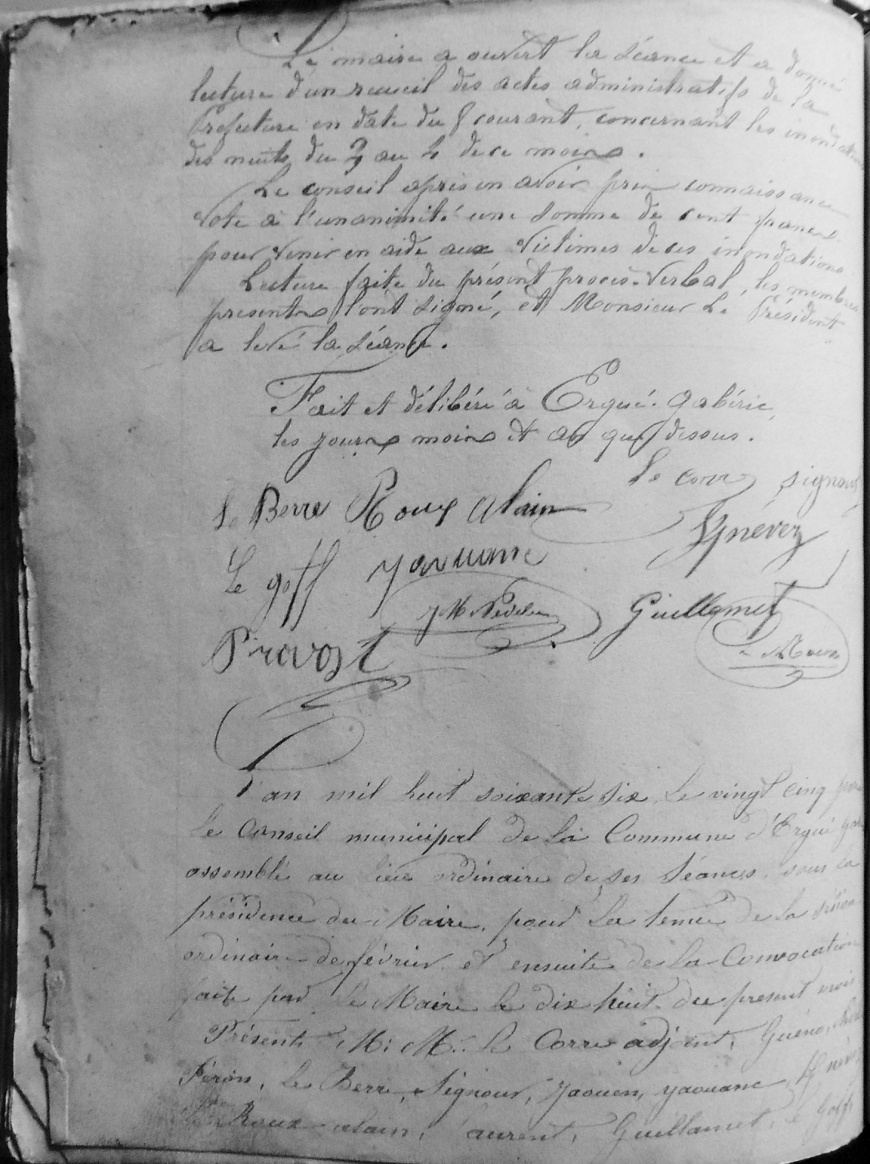 Le maire a ouvert la séance et a donné
lecture d'un recueil des actes administratifs de la
Préfecture en date du 8 courant, concernant les inondations
des nuits du 3 au 4 de ce mois.
Le conseil après en avoir pris connaissance
vote à l'unanimité une somme de cent francs
pour venir en aide aux victimes de ces inondations
Lecture faite du présent procès-verbal, les membres
présents l'ont signé, et Monsieur Le Président
a levé la séance.
Fait et délibéré à Ergué-gabéric,
les jours mois et an que dessus.
Le corre signour
Le Berre Roux alain
Le goff yaouanc
Guillamet
Provost
L'an mil huit soixante six Le vingt cinq
Le Conseil municipal de la Commune d'Ergué
assemblé au lieu ordinaire de ses séances, sous la
présidence du Maire, pour la tenue de la session
ordinaire de février et ensuite de la Convocation
faite par Le Maire le dix huit du présent mois
Présents M. M. Le Corre adjoint, Guéno,
Féron, Le Berre, Signour, yaouen, yaouanc,
Le Roux alain, Laurent, Guillamet, Le Goff